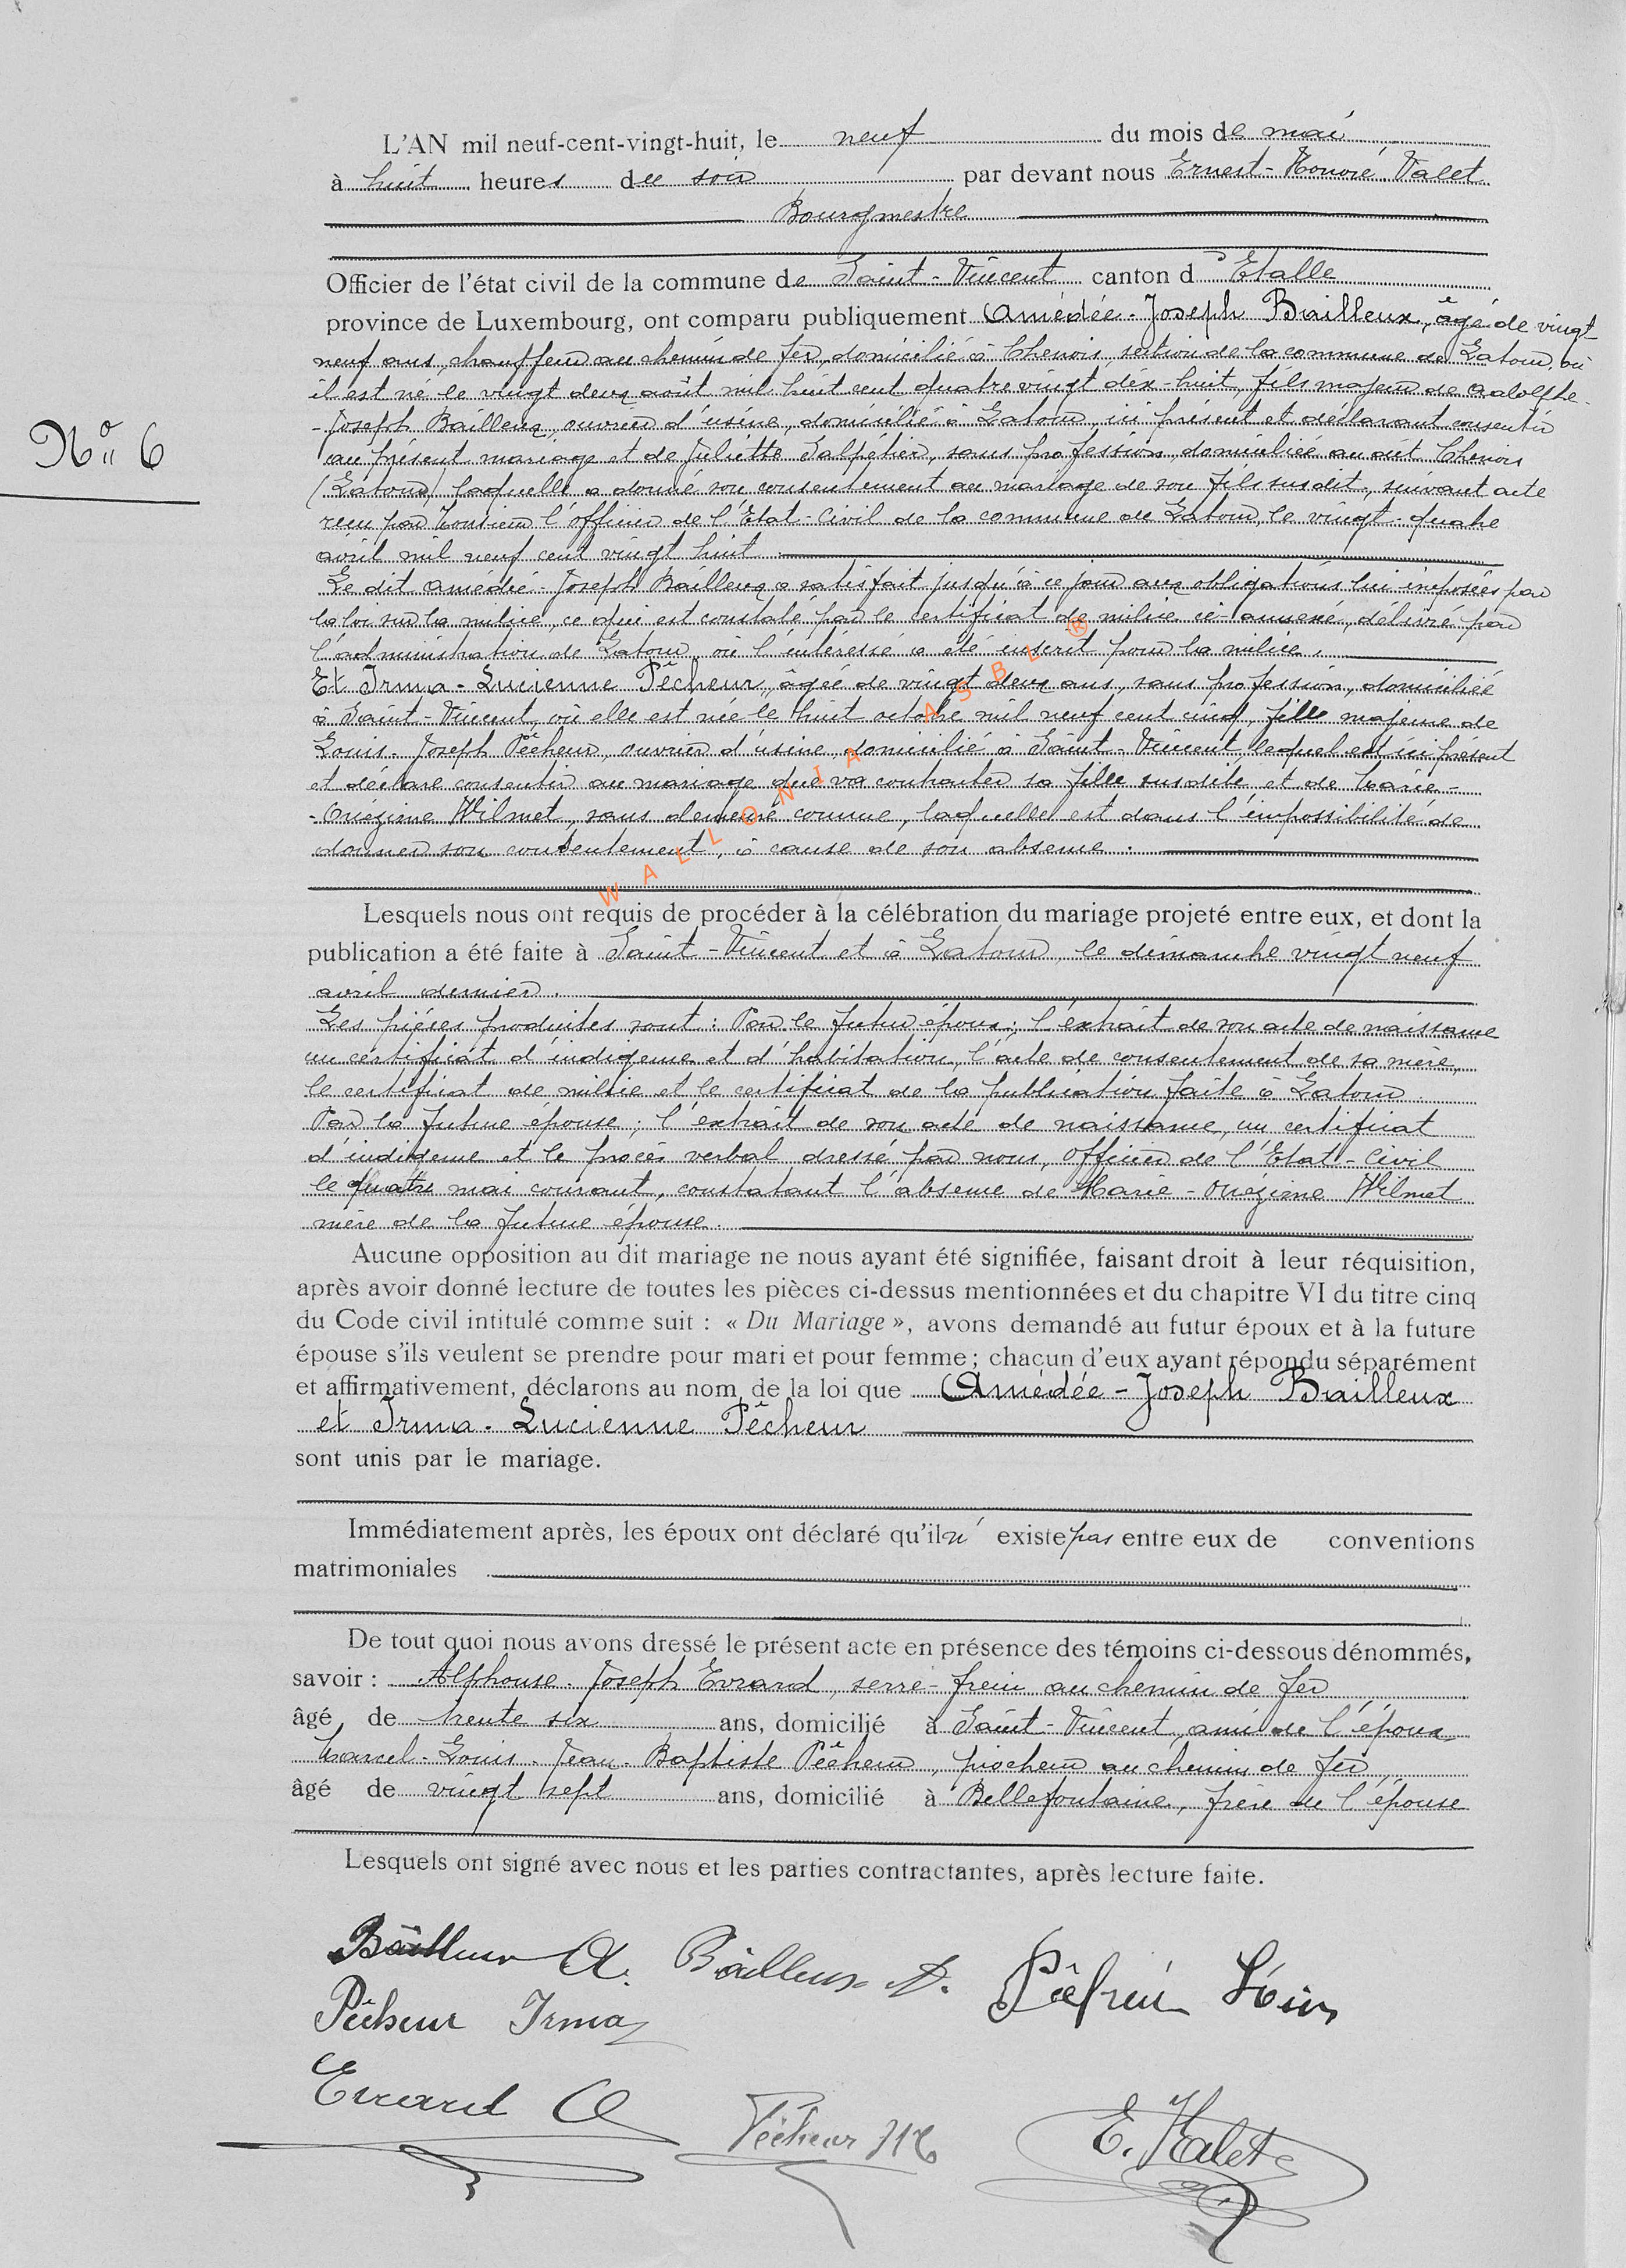 L'AN mil neuf-cent-vingt-huit, le neuf du mois de mai
à huit heures du soir par devant nous Ernest-Honoré Valet
Bourgmestre
Officier de l'état civil de la commune de Saint-Vincent canton d'Etalle
province de Luxembourg, ont comparu publiquement Amédée-Joseph Bailleux, âgé de vingt
neuf ans, chauffeur au chemin de fer, domicilié à Chenois, section de la commune de Latour, où
il est né le vingt deux août mil huit cent quatre vingt dix-huit, fils majeur de Adolphe-
-Joseph Bailleux, ouvrier d'usine, domicilié à Latour, ici présent et déclarant consentir
N° 6
au présent mariage et de Juliette Salpétier, sans profession, domiciliée au dit Chenois
(Latour) laquelle a donné son consentement au mariage de son fils susdit, suivant acte
reçu par Monsieur l'officier de l'Etat-Civil de la commune de Latour, le vingt-quatre
avril mil neuf cent vingt huit
Le dit Amédée-Joseph Bailleux a satisfait jusqu'à ce jour aux obligations lui imposées par
la loi sur la milice, ce qui est constaté par le certificat de milice ci-annexé, délivré par
l'administration de Latour, où l'intéressé a été inscrit pour la milice.
Et Irma-Lucienne Pêcheur, âgée de vingt deux ans, sans profession, domiciliée
à Saint-Vincent, où elle est née le huit octobre mil neuf cent cinq, fille majeure de
Louis-Joseph Pêcheur, ouvrier d'usine, domicilié à Saint-Vincent, lequel est ici présent
et déclare consentir au mariage que va contracter sa fille susdite et de Marie-
-Onézime Wilmet, sans demeure connue, laquelle est dans l'impossibilité de
donner son consentement, à cause de son absence.
WALLONIA ASBL ®
Lesquels nous ont requis de procéder à la célébration du mariage projeté entre eux, et dont la
publication a été faite à Saint-Vincent et à Latour, le dimanche vingt neuf
avril dernier.
Les pièces produites sont : Par le futur époux ; l'extrait de son acte de naissance
un certificat d'indigence et d'habitation, l'acte de consentement de sa mère,
le certificat de milice et le certificat de la publication faite à Latour.
Par la future épouse ; l'extrait de son acte de naissance, un certificat
d'indigence et le procès verbal dressé par nous, officier de l'Etat-Civil
le quatre mai courant, constatant l'absence de Marie-Onézime Wilmet
mère de la future épouse.
Aucune opposition au dit mariage ne nous ayant été signifiée, faisant droit à leur réquisition,
après avoir donné lecture de toutes les pièces ci-dessus mentionnées et du chapitre VI du titre cinq
du Code civil intitulé comme suit : « Du Mariage », avons demandé au futur époux et à la future
épouse s'ils veulent se prendre pour mari et pour femme ; chacun d'eux ayant répondu séparément
et affirmativement, déclarons au nom de la loi que Amédée-Joseph Bailleux
et Irma-Lucienne Pêcheur
sont unis par le mariage.
Immédiatement après, les époux ont déclaré qu'il n'existe pas entre eux de conventions
matrimoniales
De tout quoi nous avons dressé le présent acte en présence des témoins ci-dessous dénommés,
savoir : Alphonse-Joseph Evrard, serre-frein au chemin de fer
âgé de trente six ans, domicilié à Saint-Vincent, ami de l'époux
Marcel-Louis-Jean-Baptiste Pêcheur, piocheur au chemin de fer,
âgé de vingt sept ans, domicilié à Bellefontaine, frère de l'épouse
Lesquels ont signé avec nous et les parties contractantes, après lecture faite.
Bailleux A. Bailleux A. Pêcheur
Pêcheur Irma
Evrard A Pêcheur M E. Valet